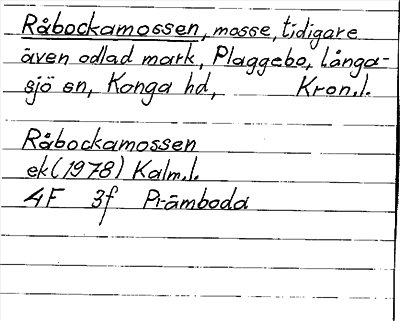 Råbockamossen, mosse, tidigare
även odlad mark, Plaggebo, Långa-
sjö sn, Konga hd, Kron.l.
Råbockamossen
ek (1978) Kalm.l.
4F 3f Prämboda